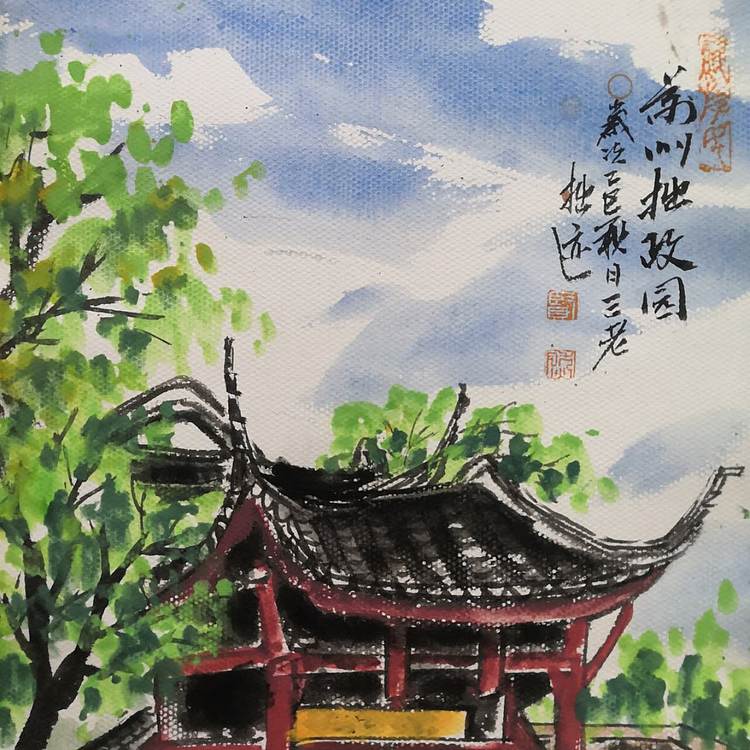 苏州拙政园
歲次乙巳秋日三老
拙迹